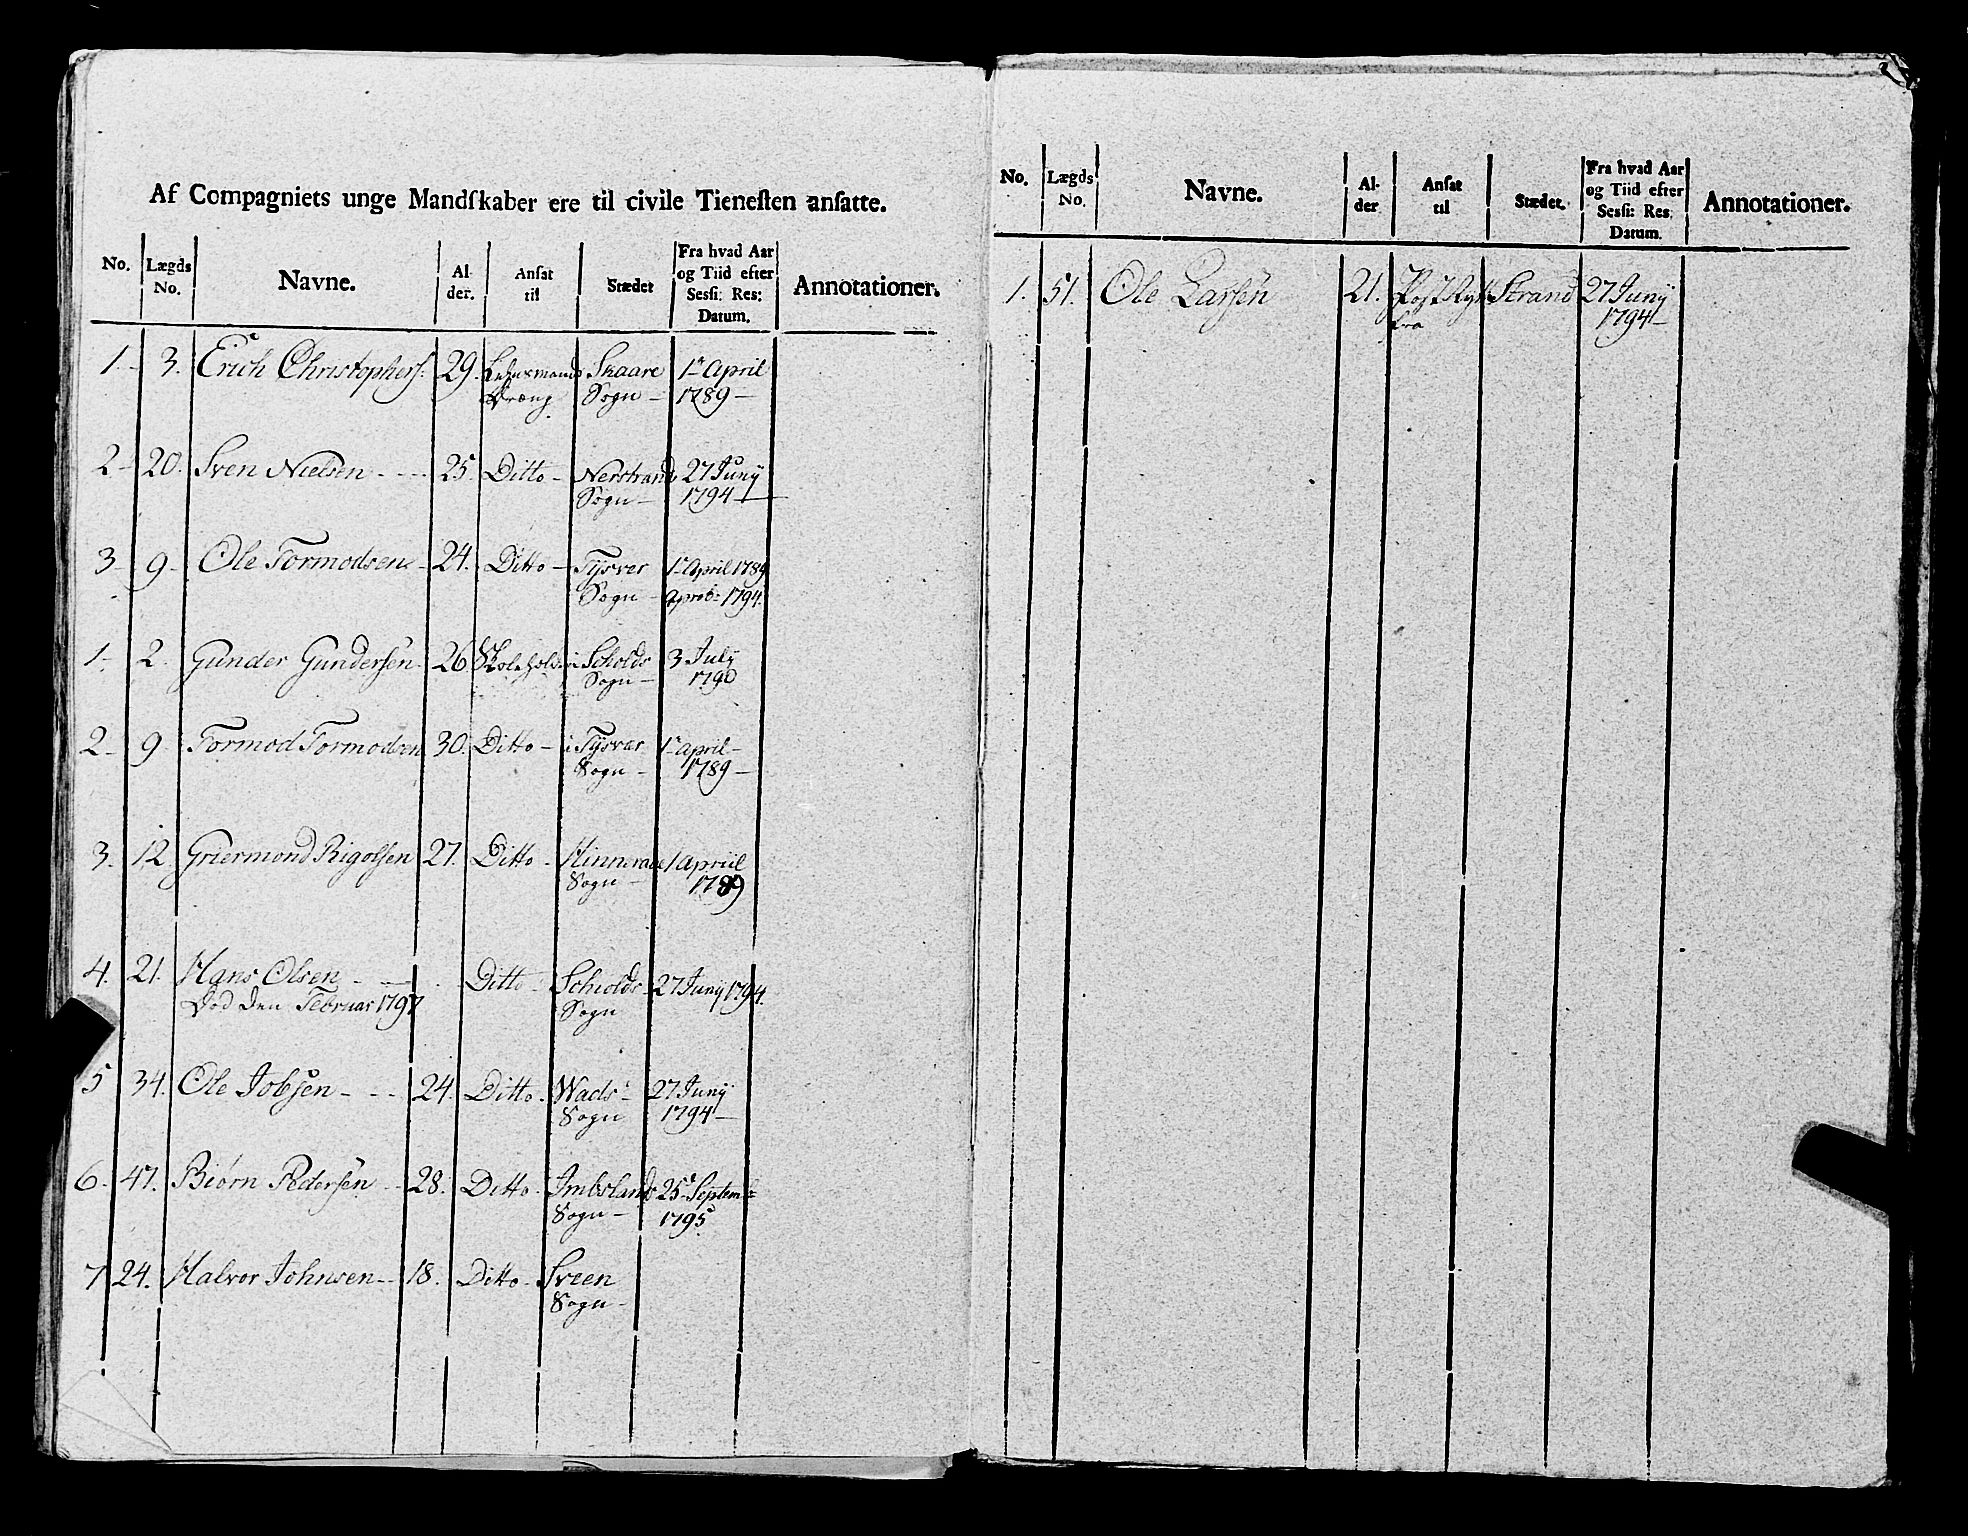 Af Compagniets unge Mandſkaber ere til civile Tieneſten anſatte.
No. Lægds No. Navne. Al- der. Anſat til Stædet Fra hvad Aar og Tiid efter Sesſi: Res: Datum. Annotationer.
1. 3. Erich Christophers. 29. Lehnsmands Skaare 1 April
Dræng Sogn 1789
2 20. Sven Nielsen 25. Ditto Nerstrand 27 Juny
Sogn 1794
3 9 Ole Tormodsen 24. Ditto Tysver 1 April 1789
Sogn aprob: 1794.
1 2. Gunder Gundersen 26 i Scholds 3 July
Sogn 1790
2 9 Tormod Tormodsen 30. Ditto i Tysvær 1 April
Sogn 1789
3. 12. Rigolsen 27. Ditto 1 Apriil
Sogn 1789
4. 21. Hans Olsen Ditto Scholds 27 Juny 1794.
Død den Februar 1797 Sogn
5 34. Ole Jobsen 24. Ditto Wads 27 Juny
Sogn 1794
6 47. Biørn Pedersen 28. Ditto Imbslands 25 Septem:
Sogn 1795
7 24. Halvor Johnsen 18. Ditto Sveen
Sogn
No. Lægds No. Navne. Al- der Anſat til Stædet. Fra hvad Aar og Tiid efter Sesſi: Res. Datum. Annotationer.
1. 51. Ole Larsen 21. Strand 27 Juny
fra 1794